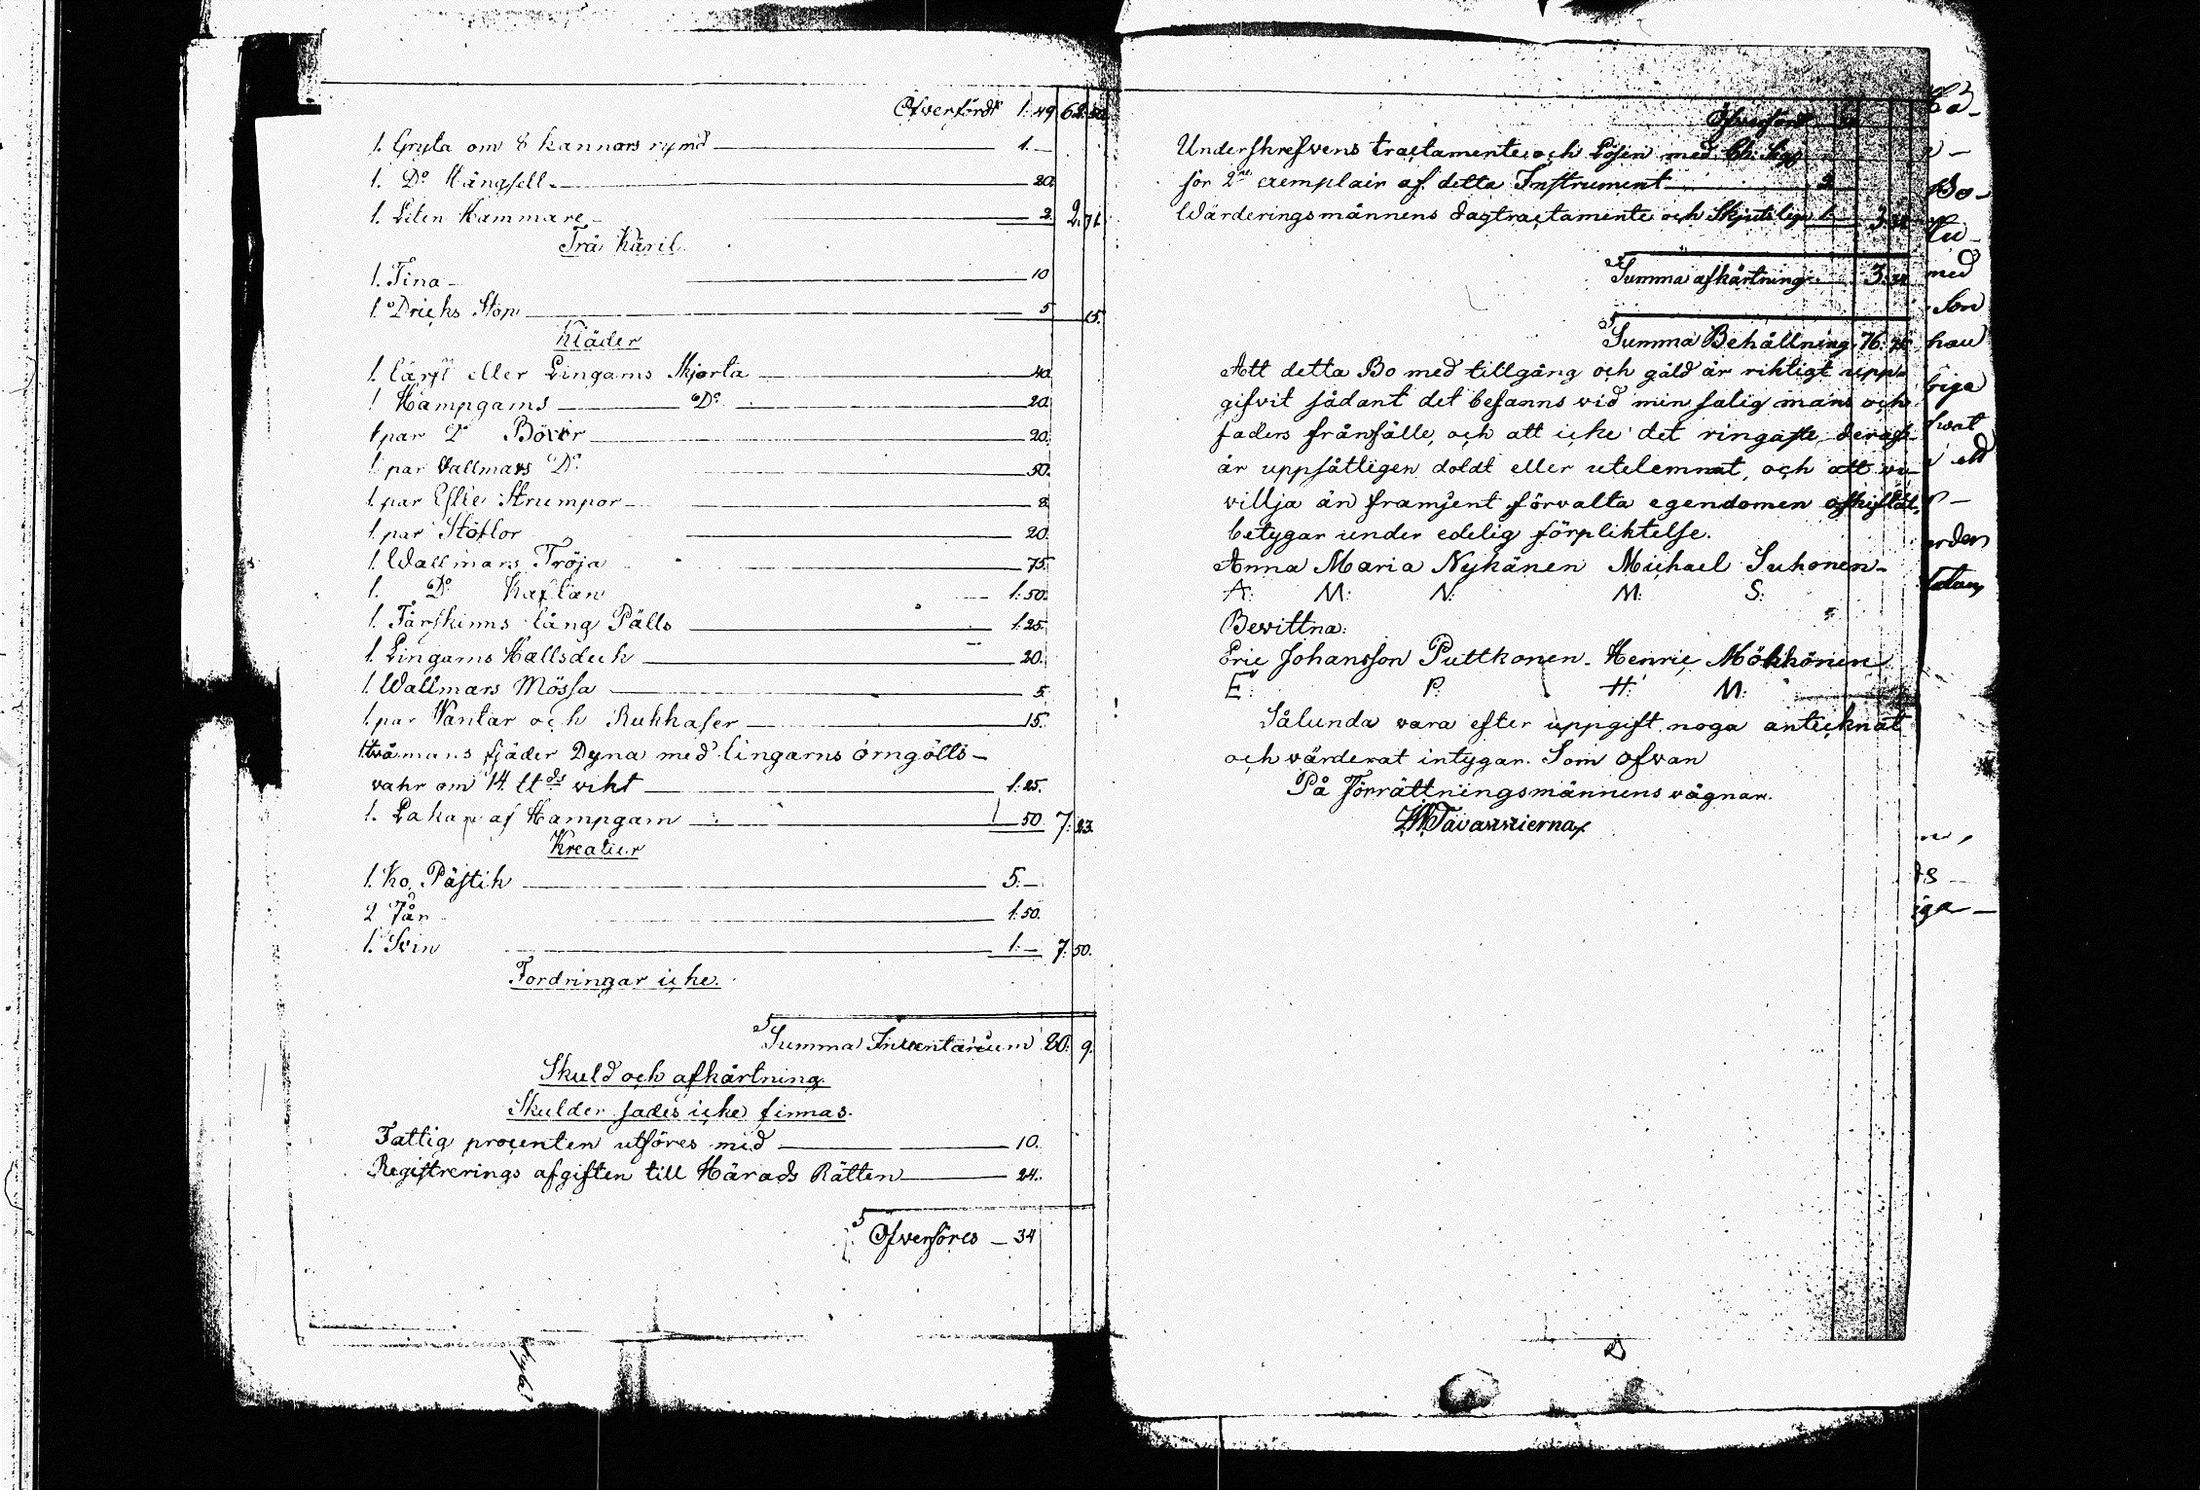 Öfverfördt 1:49 62:50
1. Gryta om 8 kannors rymd 1.—
1. Do Hängsell 20.
1. Liten Hammare 2. 2. 71.
Trä Käril
1. Tina 10
1. Dricks Stop 5 15.
Kläder
1. Lärft eller Lingarns Skjorta 40.
1 Hampgarns Do 20.
1 par Do Böxor 20.
1 par Vallmars Do 50.
1 par Esse Strumpor 8
1. par Stöflor 20.
1. Wallmars Tröja 75.
1. Do Kaftan 1:50.
1. Fårskinns lång Pälls 1:25.
1. Lingarns Hallsduk 20.
1. Wallmars Mössa 5.
1. par Wantar och Rukkaser 15.
1 tvåmans fjäder Dyna med lingarns örngötts-
vahr om 14. lt ds vikt 1:25.
1. Lakan af Hampgarn 50. 7: 23.
Kreatur
1. Ko, Pästik 5.—
2 Får 1:50.
1. Svin 1:— 7: 50.
Fordringar icke.
Summa Inventarium 80: 9.
Skuld och afkårtning.
Skulder sades icke finnas.
Fattig procenten utföres med 10.
Registrerings afgiften till Härads Rätten 24.
Öfverföres — 34
Öfverfördt
Underskrefvens tractamente och Lösen med
för 2ne exemplair af detta Instrument 2
Wärderingsmännens dagtractamente och Skjutslega 1. 3: 34
Summa afkårtning 3: 34
Summa Behållning 76: 75
Att detta Bo med tillgång och gäld är riktigt upp-
gifvit sådant det befanns vid min salig mans och
faders frånfälle, och att icke det ringaste deraf
är uppsåtligen doldt eller utelemnat, och att vi
villja än framjent förvalta egendomen oskiftat,
betygar under edelig förpliktelse.
Anna Maria Nykänen Michael Suhonen
A: M: N: M: S:
Bevittna:
Eric Johansson Puttkonen. Henric Mökkönen
E: P: H: M:
Sålunda vara efter uppgift noga antecknat
och värderat intygar. Som ofvan
På Förrättningsmännens vägnar.